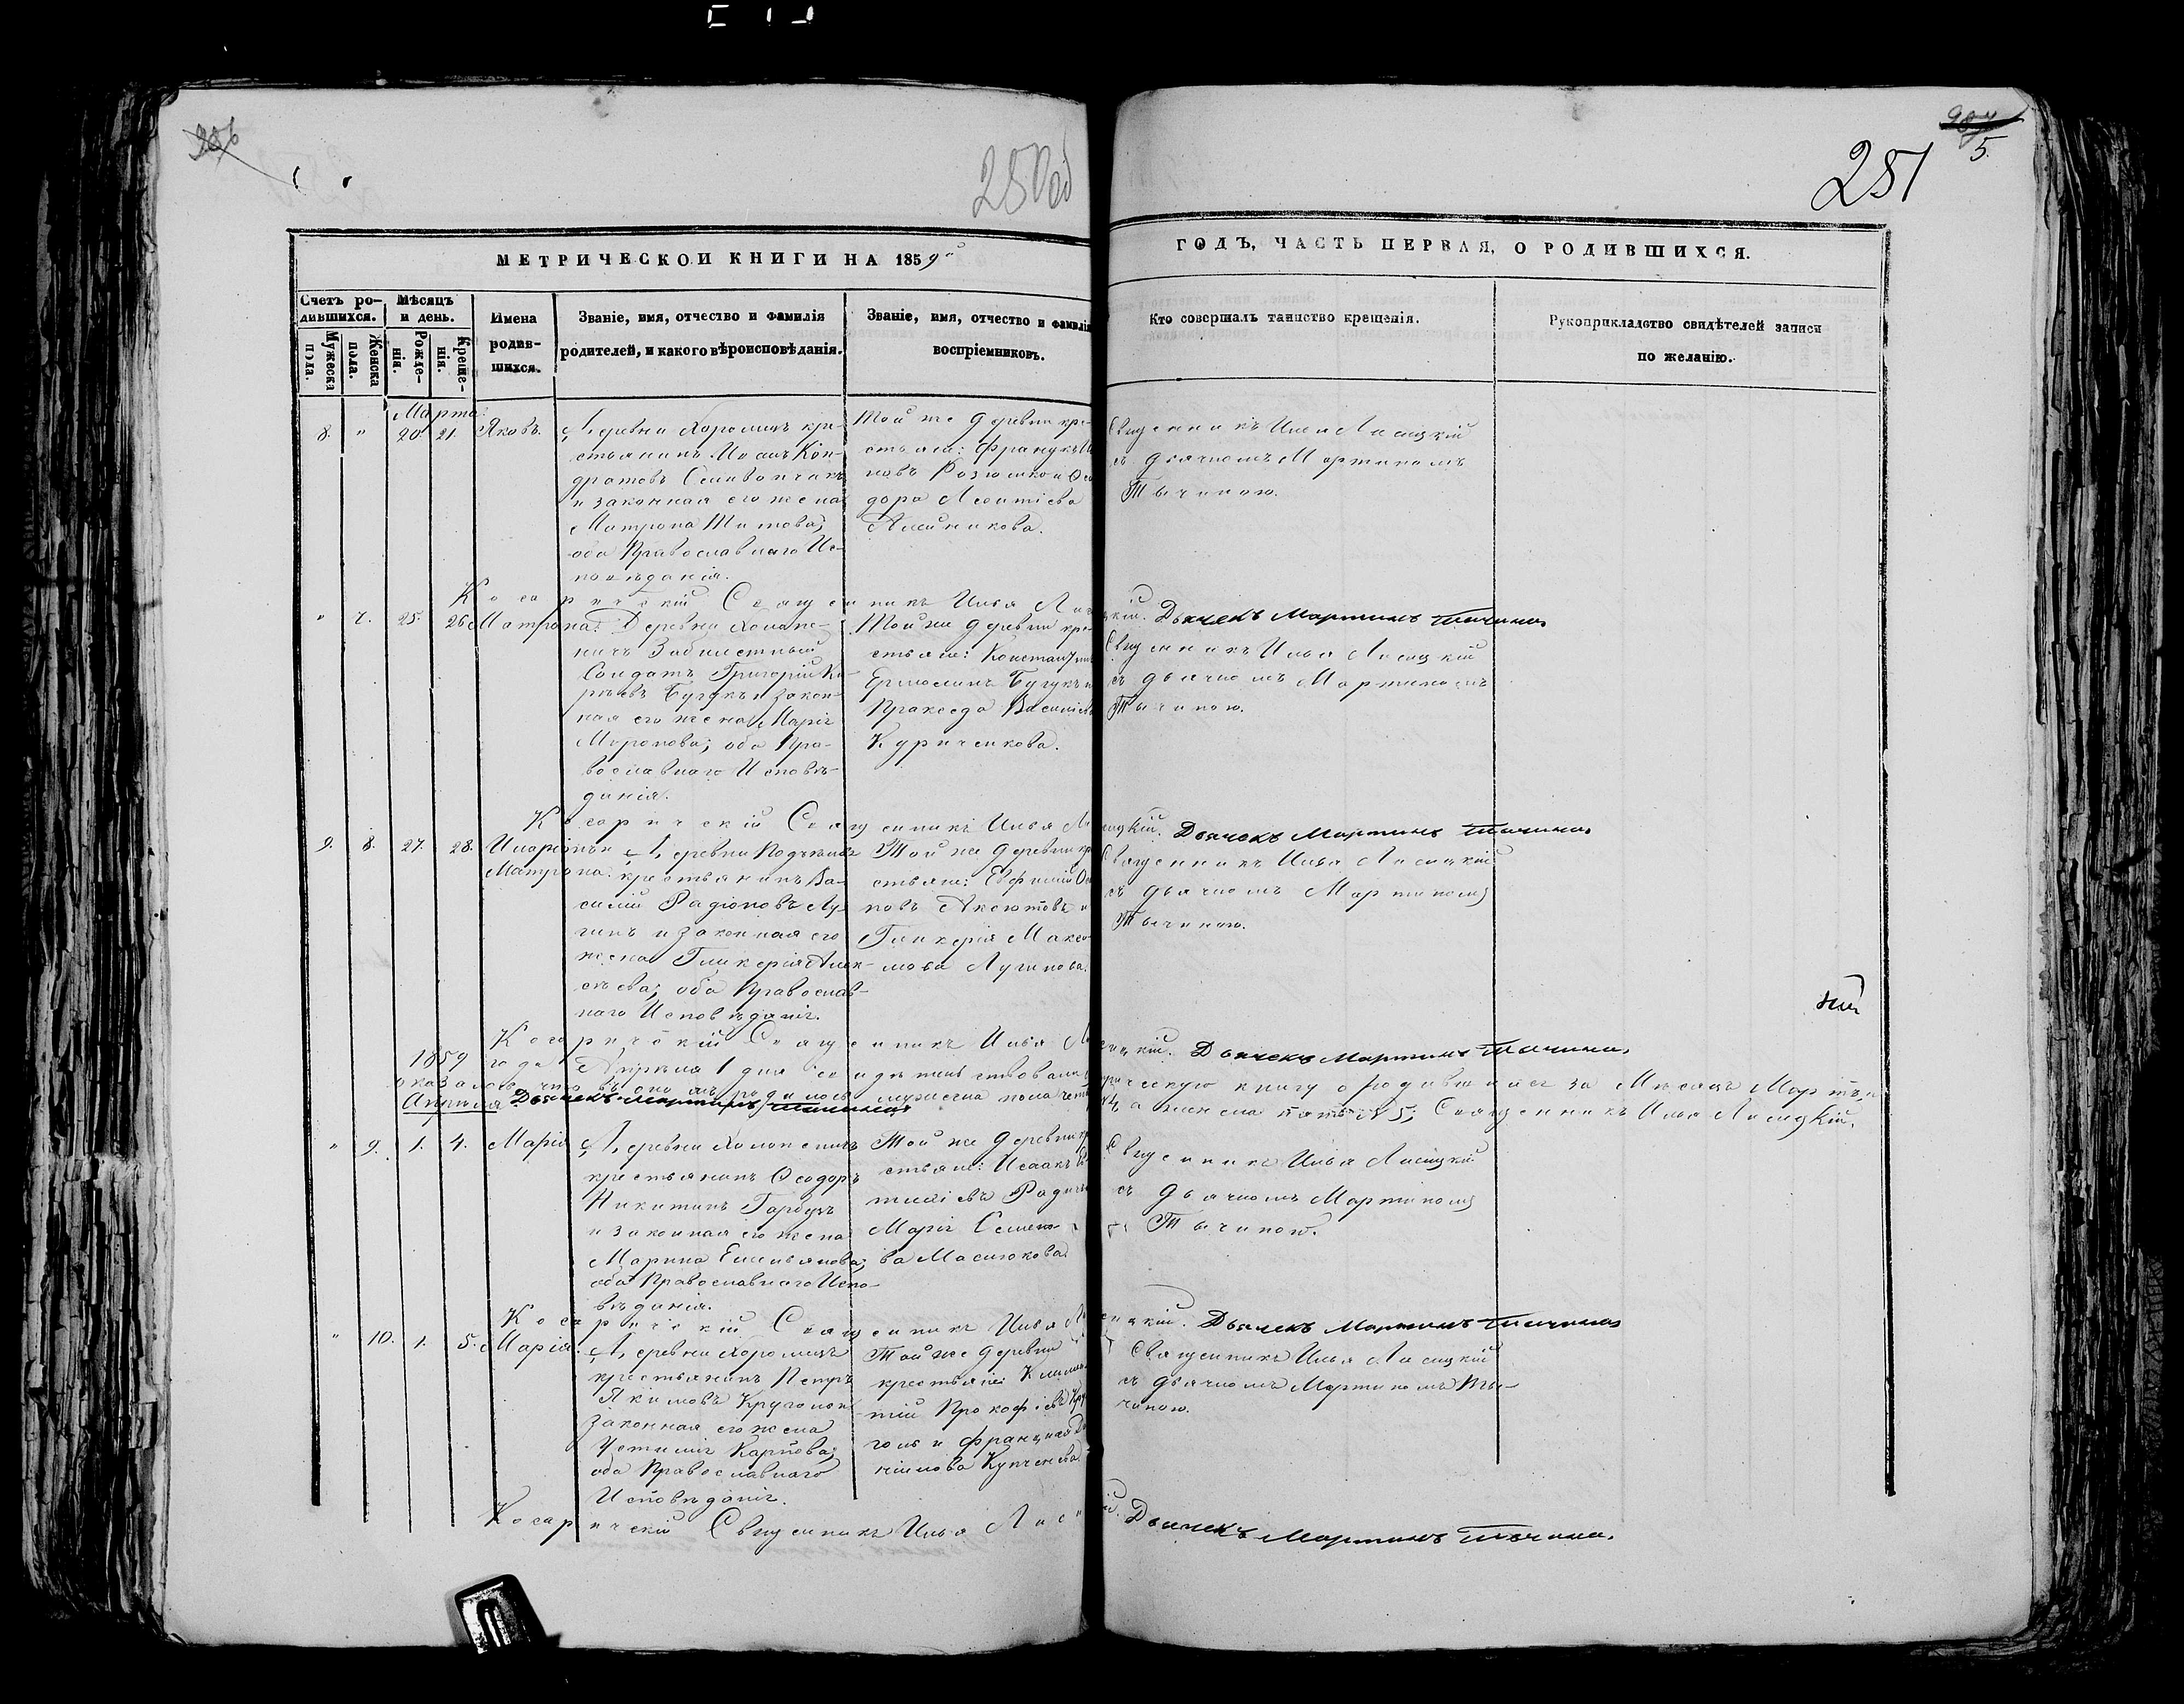 250об
251
5.
МЕТРИЧЕСКОЙ КНИГИ НА 1859й
ГОДЪ, ЧАСТЬ ПЕРВАЯ, О РОДИВШИХСЯ.
Счетъ ро-
дившихся.
Мужеска пола.
Женска пола.
Мѣсяцъ
и день.
Рожде-
нія.
Креще-
нія.
Имена
родив-
шихся.
Званіе, имя, отчество и фамилія
родителей, и какого вѣроисповѣданія.
Званіе, имя, отчество и фамилія
воспріемниковъ.
Кто совершалъ таинство крещенія.
Рукоприкладство свидѣтелей записи
по желанію.
Марта
8. " 20. 21. Яковъ.
Деревни Хоромецъ кре-
стьянинъ Кон-
дратовъ
и законная его жена
Матрона Титова;
оба Православнаго Ис-
повѣданія.
Той же деревни кре-
стьяне:
дора Леонтіева
Алейникова.
Священникъ Илья Лисицкій
съ дьячкомъ Мартиномъ
Тычиною.
Косаричскій Священникъ Илья Лисицкій. Дьячекъ Мартинъ Тычина.
" 7. 25. 26. Матрона.
Деревни
Солдатъ Григорій
и закон-
ная его жена Марія
Миронова; оба Пра-
вославнаго Исповѣ-
данія.
Той же деревни кре-
стьяне: Константинъ
Ермолинъ
Праксeда Васильева
Куриченкова.
Священникъ Илья Лисицкій
съ дьячкомъ Мартиномъ
Тычиною.
Косаричскій Священникъ Илья Лисицкій. Дьячекъ Мартинъ Тычина.
9. 8. 27. 28. Иларіонъ и
Матрона.
Деревни
крестьянинъ Ва-
силій Радіоновъ Лу-
гинъ и законная его
жена Гликерія Алек-
сѣева; оба Православ-
наго Исповѣданія.
Той же деревни кре-
стьяне: Евфимій
новъ Аксютовъ и
Гликерія Макси-
мова Лугинова.
Священникъ Илья Лисицкій
съ дьячкомъ Мартиномъ
Тычиною.
Косаричскій Священникъ Илья Лисицкій. Дьячекъ Мартинъ Тычина.
1859 года Апрѣля 1 дня свидѣтельствовалъ
книгу о родившихся за Мѣсяцъ Мартъ, и
оказалось что въ ономъ родилось мужеска пола
№4 а женска пять №5; Священникъ Илья Лисицкій.
Дьячекъ Мартинъ Тычина
Апрѣля
" 9. 1. 4. Марія
Деревни
крестьянинъ Ѳеодоръ
Никитинъ Гарбузъ
и законная его жена
Марина Емельянова;
оба Православнаго Испо-
вѣданія.
Той же деревни кре-
стьяне: Исаакъ
Марія Семено-
ва Масюкова.
Священникъ Илья Лисицкій
съ дьячкомъ Мартиномъ
Тычиною.
Косаричскій Священникъ Илья Лисицкій. Дьячекъ Мартинъ Тычина
" 10. 1. 5. Марія.
Деревни Хоромецъ
крестьянинъ Петръ
Якимовъ
законная его жена
Устинія Карпова;
оба Православнаго
Исповѣданія.
Той же деревни
крестьяне:
Прокофіевъ
и Францишка
Купченкова.
Священникъ Илья Лисицкій
съ дьячкомъ Мартиномъ Ты-
чиною.
Косаричскій Священникъ Илья Лисицкій. Дьячекъ Мартинъ Тычина.